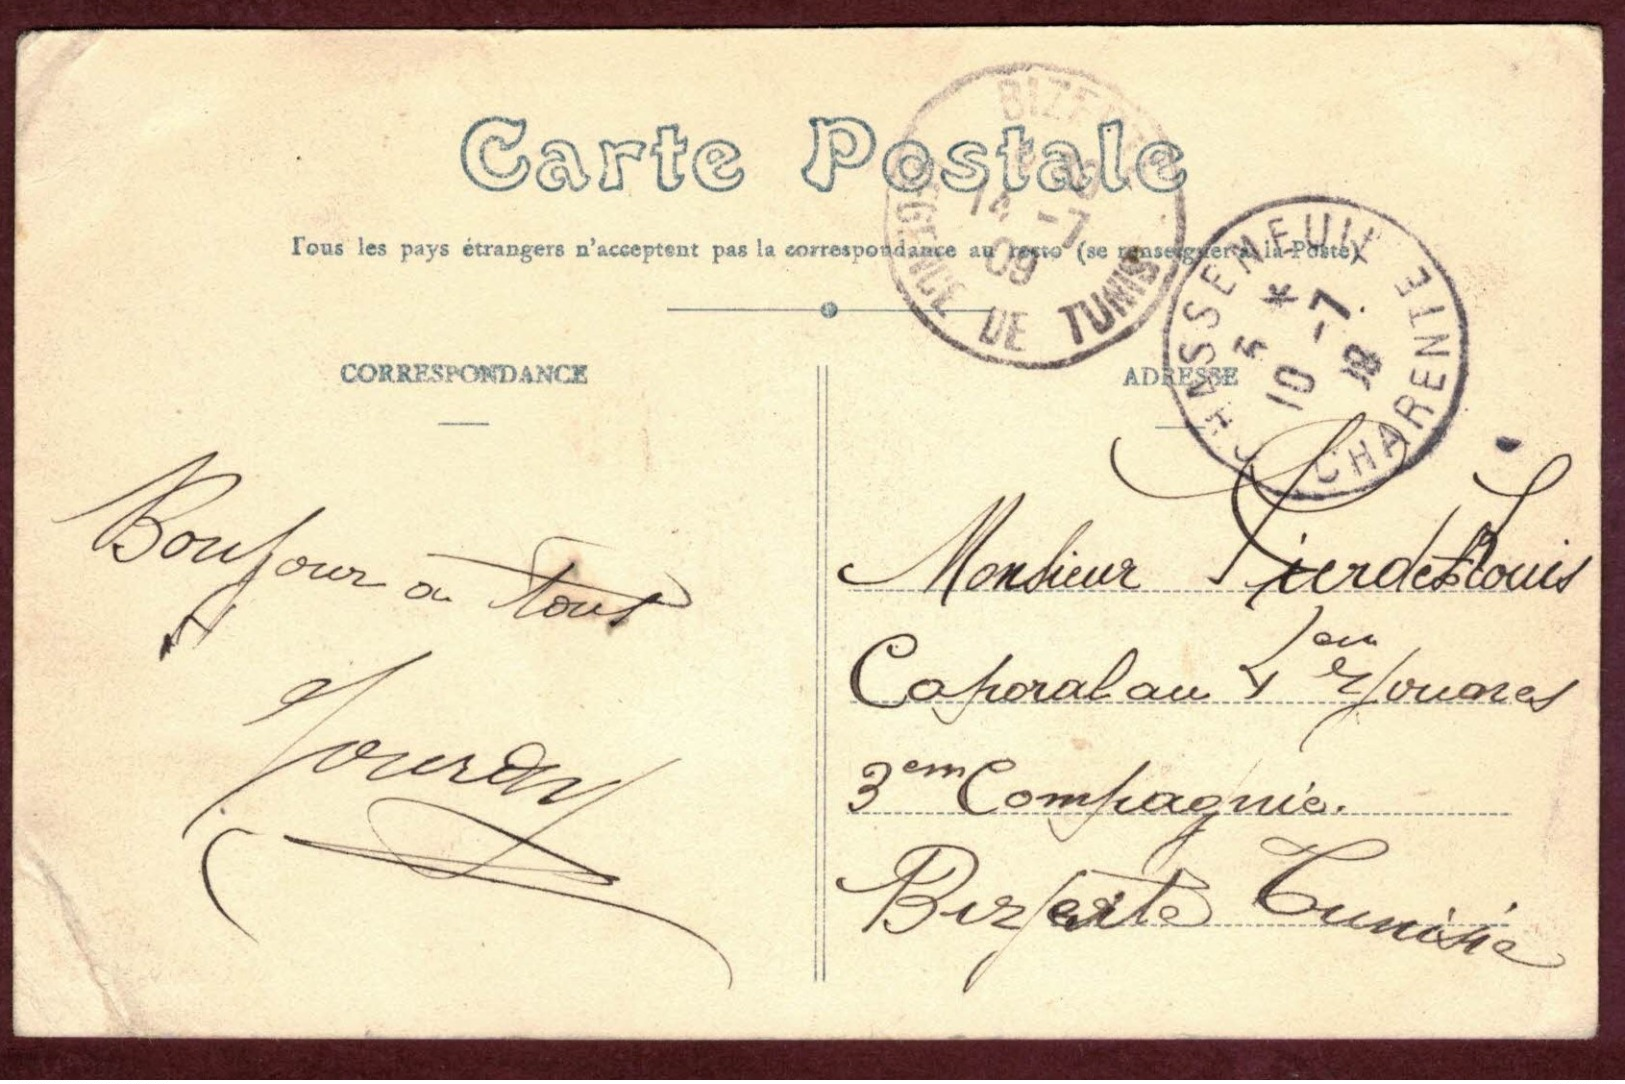 Carte Postale
Tous les pays étrangers n'acceptent pas la correspondance au recto (se renseigner à la Poste)
BIZERTE
14 -7
09
REGENCE DE TUNIS
CHASSENEUIL
5 *
10 -7
CHARENTE
CORRESPONDANCE
ADRESSE
Bonjour a tous
Jourdan
Monsieur Louis
Caporal au 4 em Zouaves
3em Compagnie.
Bizerte Tunisie